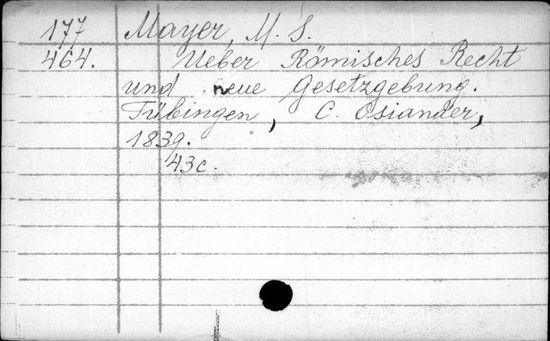 177 Mayer, M. S.
464. Ueber Römisches Recht
und neue Gesetzgebung.
Tübingen, C. Osiander,
1839.
43c.